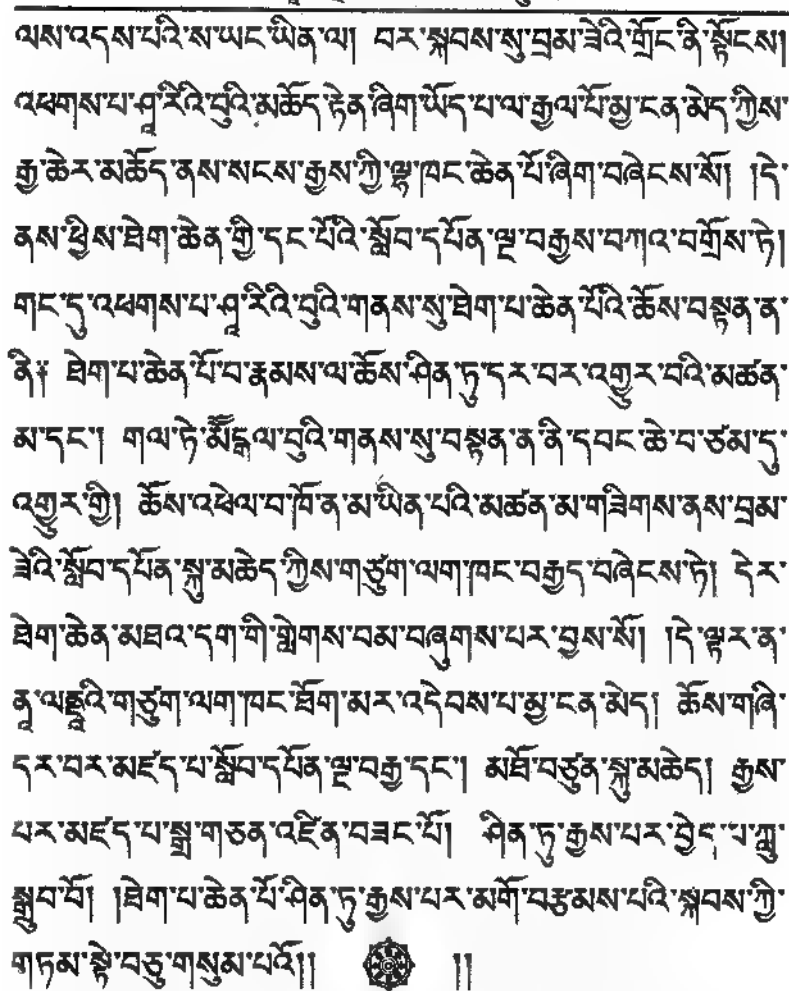 ལས་འདས་པའི་ས་ཡང་ཡིན་ལ། བར་སྐབས་སུ་བྲམ་ཟེའི་གྲོང་ནི་སྟོངས།
འཕགས་པ་ཤཱ་རིའི་བུའི་མཆོད་རྟེན་ཞིག་ཡོད་པ་ལ་རྒྱལ་པོ་མྱ་ངན་མེད་ཀྱིས་
རྒྱ་ཆེར་མཆོད་ནས་སངས་རྒྱས་ཀྱི་ལྷ་ཁང་ཆེན་པོ་ཞིག་བཞེངས་སོ། །དེ་
ནས་ཕྱིས་ཐེག་ཆེན་གྱི་དང་པོའི་སློབ་དཔོན་ལྔ་བརྒྱས་བཀའ་བགྲོས་ཏེ།
གང་དུ་འཕགས་པ་ཤཱ་རིའི་བུའི་གནས་སུ་ཐེག་པ་ཆེན་པོའི་ཆོས་བསྟན་ན་
ནི༔ ཐེག་པ་ཆེན་པོ་བ་རྣམས་ལ་ཆོས་ཤིན་ཏུ་དར་བར་འགྱུར་བའི་མཚན་
མ་དང་། གལ་ཏེ་མཽངྒལ་བུའི་གནས་སུ་བསྟན་ན་ནི་དབང་ཆེ་བ་ཙམ་དུ་
འགྱུར་གྱི། ཆོས་འཕེལ་བ་ཁོ་ན་མ་ཡིན་པའི་མཚན་མ་གཟིགས་ནས་བྲམ་
ཟེའི་སློབ་དཔོན་སྐུ་མཆེད་ཀྱིས་གཙུག་ལག་ཁང་བརྒྱད་བཞེངས་ཏེ། དེར་
ཐེག་ཆེན་མཐའ་དག་གི་གླེགས་བམ་བཞུགས་པར་བྱས་སོ། །དེ་ལྟར་ན་
ནཱ་ལནྡཱའི་གཙུག་ལག་ཁང་ཐོག་མར་འདེབས་པ་མྱ་ངན་མེད། ཆོས་གཞི་
དར་བར་མཛད་པ་སློབ་དཔོན་ལྔ་བརྒྱ་དང་། མཐོ་བཙུན་སྐུ་མཆེད། རྒྱས་
པར་མཛད་པ་སྒྲ་གཅན་འཛིན་བཟང་པོ། ཤིན་ཏུ་རྒྱས་པར་བྱེད་པ་ཀླུ་
སྒྲུབ་བོ། །ཐེག་པ་ཆེན་པོ་ཤིན་ཏུ་རྒྱས་པར་མགོ་བརྩམས་པའི་སྐབས་ཀྱི་
གཏམ་སྟེ་བཅུ་གསུམ་པའོ།། །།